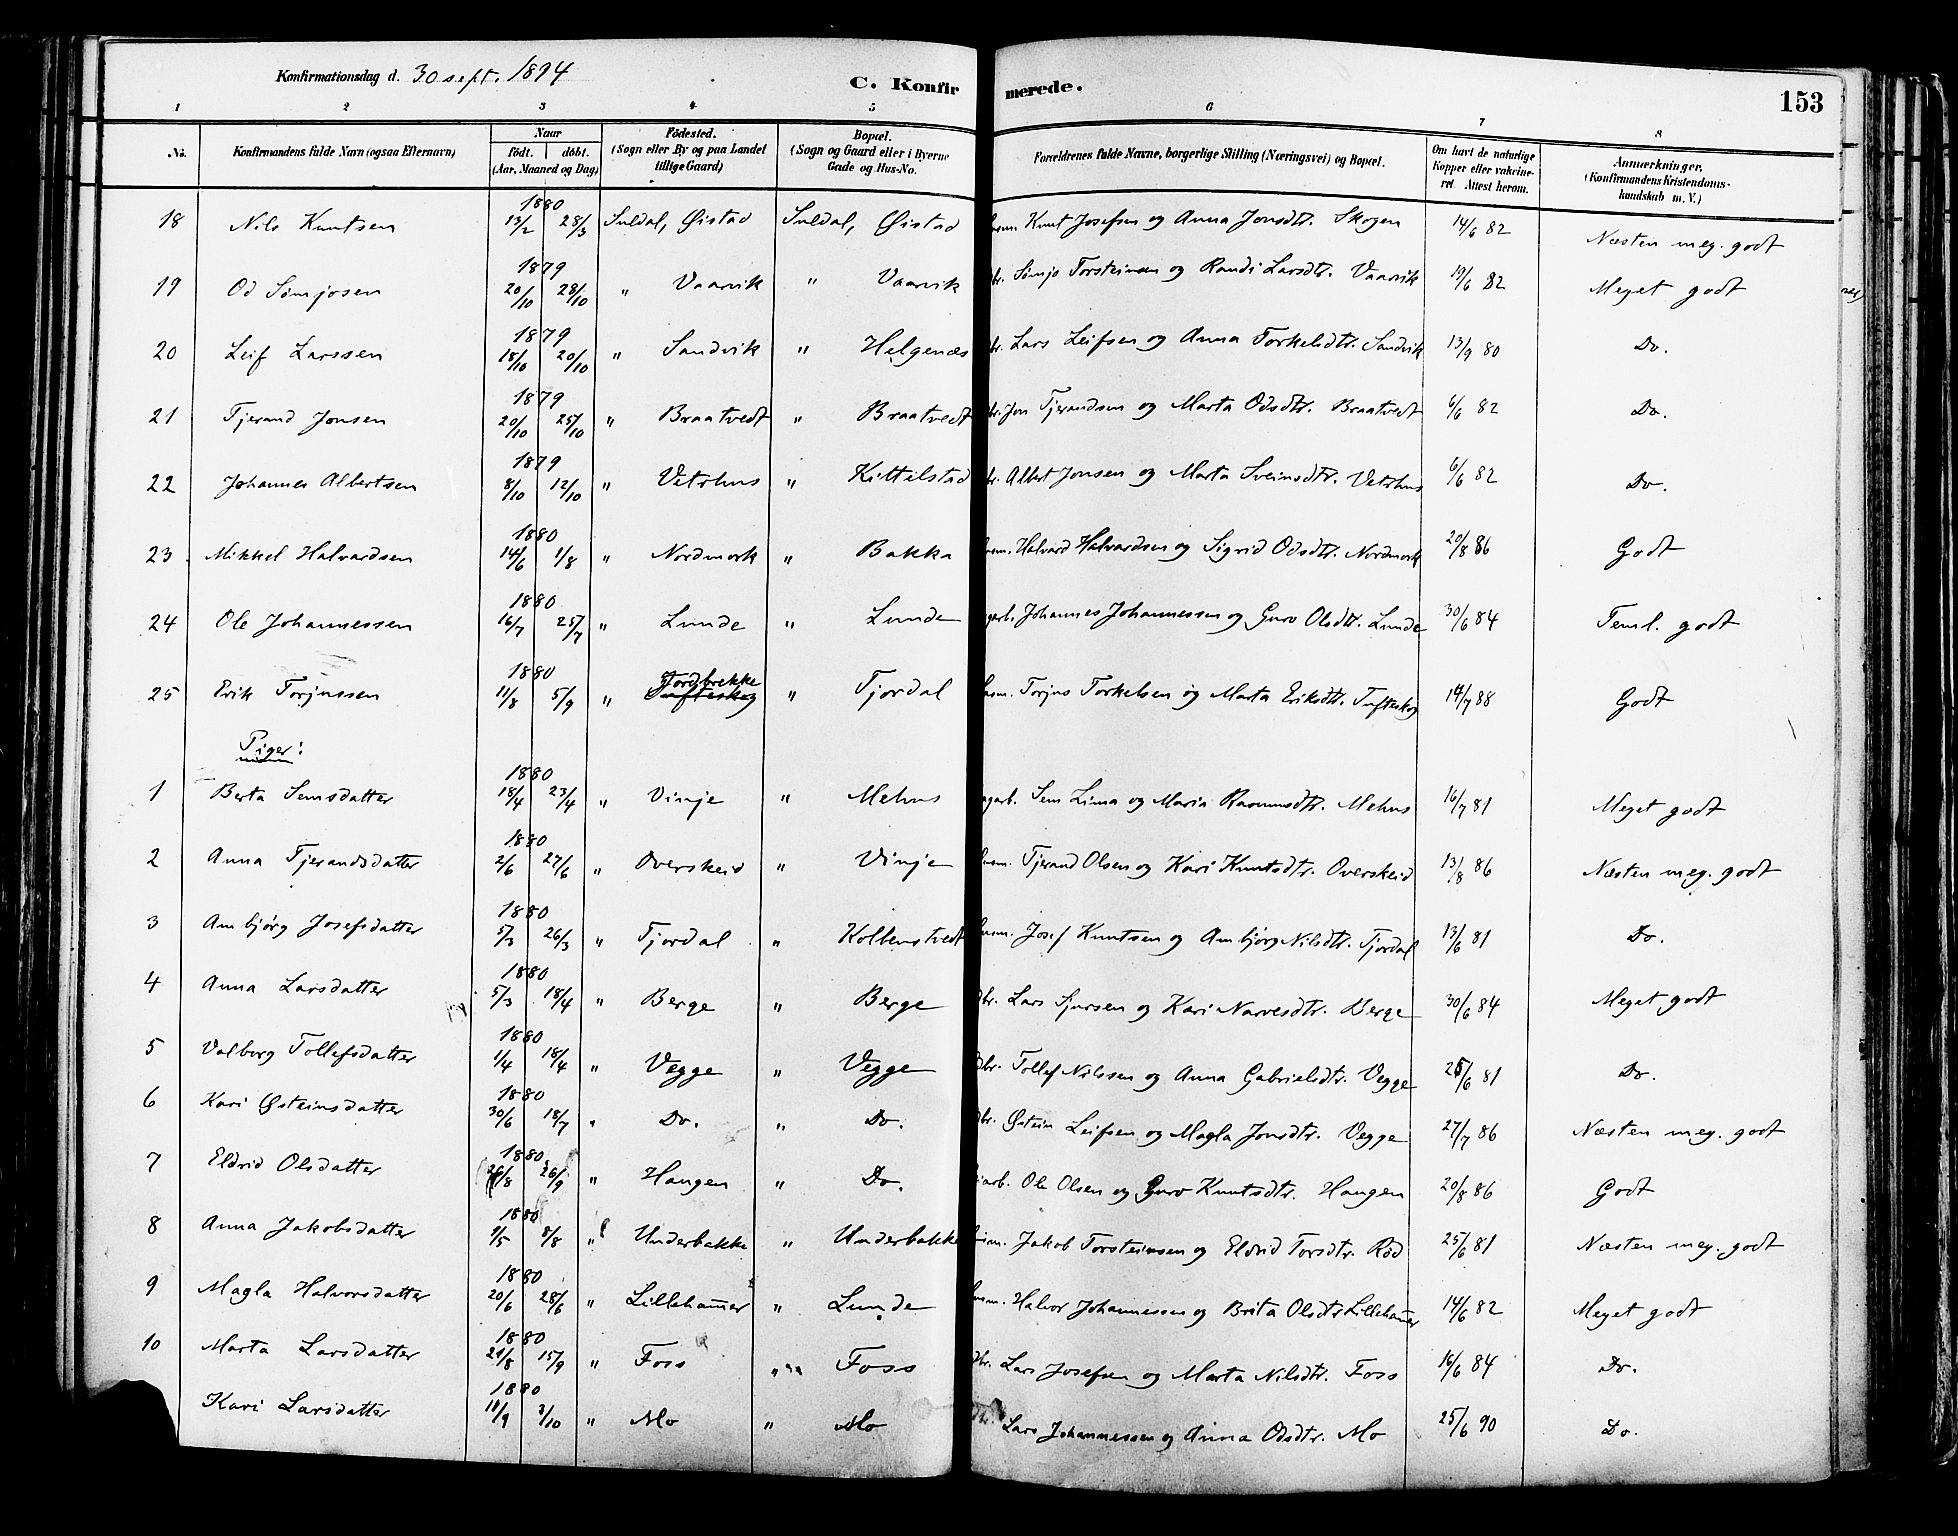 Konfirmationsdag d. 30 sept. 1894 C. Konfirmerede. 153
1 2 3 4 5 6 7 8
No. Konfirmandens fulde Navn (ogsaa Efternavn) Naar født. døbt. (Aar, Maaned og Dag) Fødested. (Sogn eller By og paa Landet tillige Gaard) Bopæl. (Sogn og Gaard eller i Byerne Gade og Hus-No. Forældrenes fulde Navne, borgerlige Stilling (Næringsvei) og Bopæl. Om havt de naturlige Kopper eller vakcineret Attest herom. Anmærkninger. (Konfirmandens Kristendomskundskab m. V.)
18 Nils Knutsen 1880 13/2 28/3 Suldal, Øistad Suldal, Øistad Knut Josefsen og Anna Jonsdtr. Skogen 14/6 82 Næsten meg. godt
19 Od Simjosen 1879 20/10 28/10 " Vaarvik " Vaarvik br. Simjo Torsteinsen og Randi Larsdtr. Vaarvik 19/6 82 Meget godt
20 Leif Larssen 1879 18/10 20/10 " Sandvik " Helgenæs br. Lars Leifsen og Anna Torkelsdtr. Sandvik 13/9 80 Do.
21 Tjerand Jonsen 1879 20/10 25/10 " Braatvedt " Braatvedt br. Jon Tjerandsen og Marta Odsdtr. Braatvedt 6/6 82 Do.
22 Johannes Albertsen 1879 8/10 12/10 " Vetrhus " Kittilstad br. Albert Jonsen og Marta Sveinsdtr. Vetrhus 6/6 82 Do.
23 Mikkel Halvardsen 1880 14/6 1/8 " Nordmork " Bakka Halvard Halvardsen og Sigrid Odsdtr. Nordmork 20/8 86 Godt
24 Ole Johannessen 1880 16/7 25/7 " Lunde " Lunde Johannes Johannessen og Guro Olsdtr. Lunde 30/6 84 Teml. godt
25 Erik Torjussen 1880 11/8 5/9 " Jordbrekke Tufteskog " Tjordal Torjus Torkelsen og Marta Eriksdtr. Tufteskog 14/7 88 Godt
Piger:
1 Berta Semsdatter 1880 18/4 23/4 " Vinje " Mehus Sem Lima og Maria Rasmusdtr. Mehus 16/7 81 Meget godt
2 Anna Tjerandsdatter 1880 2/6 27/6 " Overskeid " Vinje Tjerand Olsen og Kari Knutsdtr. Overskeid 13/8 86 Næsten meg. godt
3 Ambjørg Josefsdatter 1880 5/3 26/3 " Tjordal " Kolbenstvedt Josef Knutsen og Ambjørg Nilsdtr. Tjordal 13/6 81 Do.
4 Anna Larsdatter 1880 5/3 18/4 " Berge " Berge br. Lars Sjursen og Kari Narvesdtr. Berge 30/6 84 Meget godt
5 Valborg Tollefsdatter 1880 1/4 18/4 " Vegge " Vegge br. Tollef Nilssen og Anna Gabrielsdtr. Vegge 25/6 81 Do.
6 Kari Østeinsdatter 1880 30/6 18/7 " Do. " Do. br. Østein Leifsen og Magla Jonsdtr. Vegge 27/7 86 Næsten meg. godt
7 Eldrid Olsdatter 1880 26/8 26/9 " Haugen " Do. Ole Olsen og Guro Knutsdtr. Haugen 20/8 86 Godt
8 Anna Jakobsdatter 1880 9/5 8/8 " Underbakke " Underbakke Jakob Torsteinsen og Eldrid Torsdtr. Rød 25/6 81 Næsten meg. godt
9 Magla Halvorsdatter 1880 20/6 28/6 " Lillehammer " Lunde Halvor Johannessen og Brita Olsdtr Lillehammer 14/6 82 Meget godt
10 Marta Larsdatter 1880 21/8 15/9 " Foss " Foss br. Lars Josefsen og Marta Nilsdtr. Foss 16/6 84 Do.
Kari Larsdatter 1880 11/9 3/10 " Mo " Mo Lars Johannessen og Anna Odsdtr. Mo 25/6 90 Do.